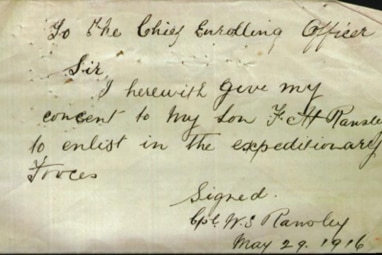 To the Chief Enrolling Officer
Sir,
I herewith Give my
concent to my Son F. H Ransley
to enlist in the expeditionary
Forces
Signed.
Cpl. W. S Ransley
May 29. 1916